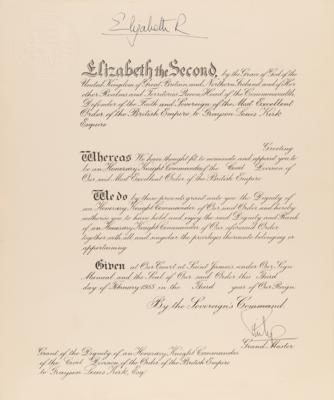 Elizabeth R
Elizabeth the Second, by the Grace of God of the
United Kingdom of Great Britain and Northern Ireland and of Her
other Realms and Territories Queen, Head of the Commonwealth,
Defender of the Faith and Sovereign of the Most Excellent
Order of the British Empire to Grayson Louis Kirk
Esquire
Greeting
Whereas We have thought fit to nominate and appoint you to
be an Honorary Knight Commander of the Civil Division of
Our said Most Excellent Order of the British Empire
We do by these presents grant unto you the Dignity of
an Honorary Knight Commander of Our said Order and hereby
authorise you to have hold and enjoy the said Dignity and Rank
of an Honorary Knight Commander of Our aforesaid Order
together with all and singular the privileges thereunto belonging or
appertaining
Given at Our Court at Saint James's under Our Sign
Manual and the Seal of Our said Order this Third
day of February 1955 in the Third year of Our Reign
By the Sovereign's Command
Philip
Grand Master
Grant of the Dignity of an Honorary Knight Commander
of the Civil Division of the Order of the British Empire
to Grayson Louis Kirk, Esq